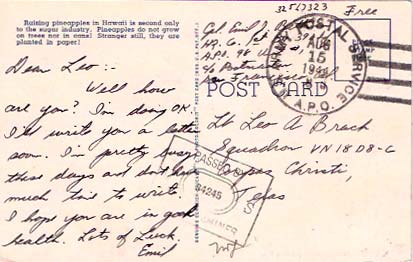 Raising pineapples in Hawaii is second only
to the sugar industry. Pineapples do not grow
on trees nor in cans! Stranger still, they are
planted in paper!
Dear Leo:-
Well how
are you? I'm doing OK.
I'll write you a letter
soon. I'm pretty busy
these days and don't have
much time to write.
I hope you are in good
health. Lots of Luck.
Emil
32517323
Free
Cpl. Emil J.
HQ. Co.
A.P.O. 98
c/o Postmaster
San Francisco
U.S. ARMY POSTAL SERVICE
AUG
15
A.P.O.
POST CARD
PASSED BY
34245
Lt Leo A Brach
Squadron VN18D8-C
Corpus Christi,
Texas